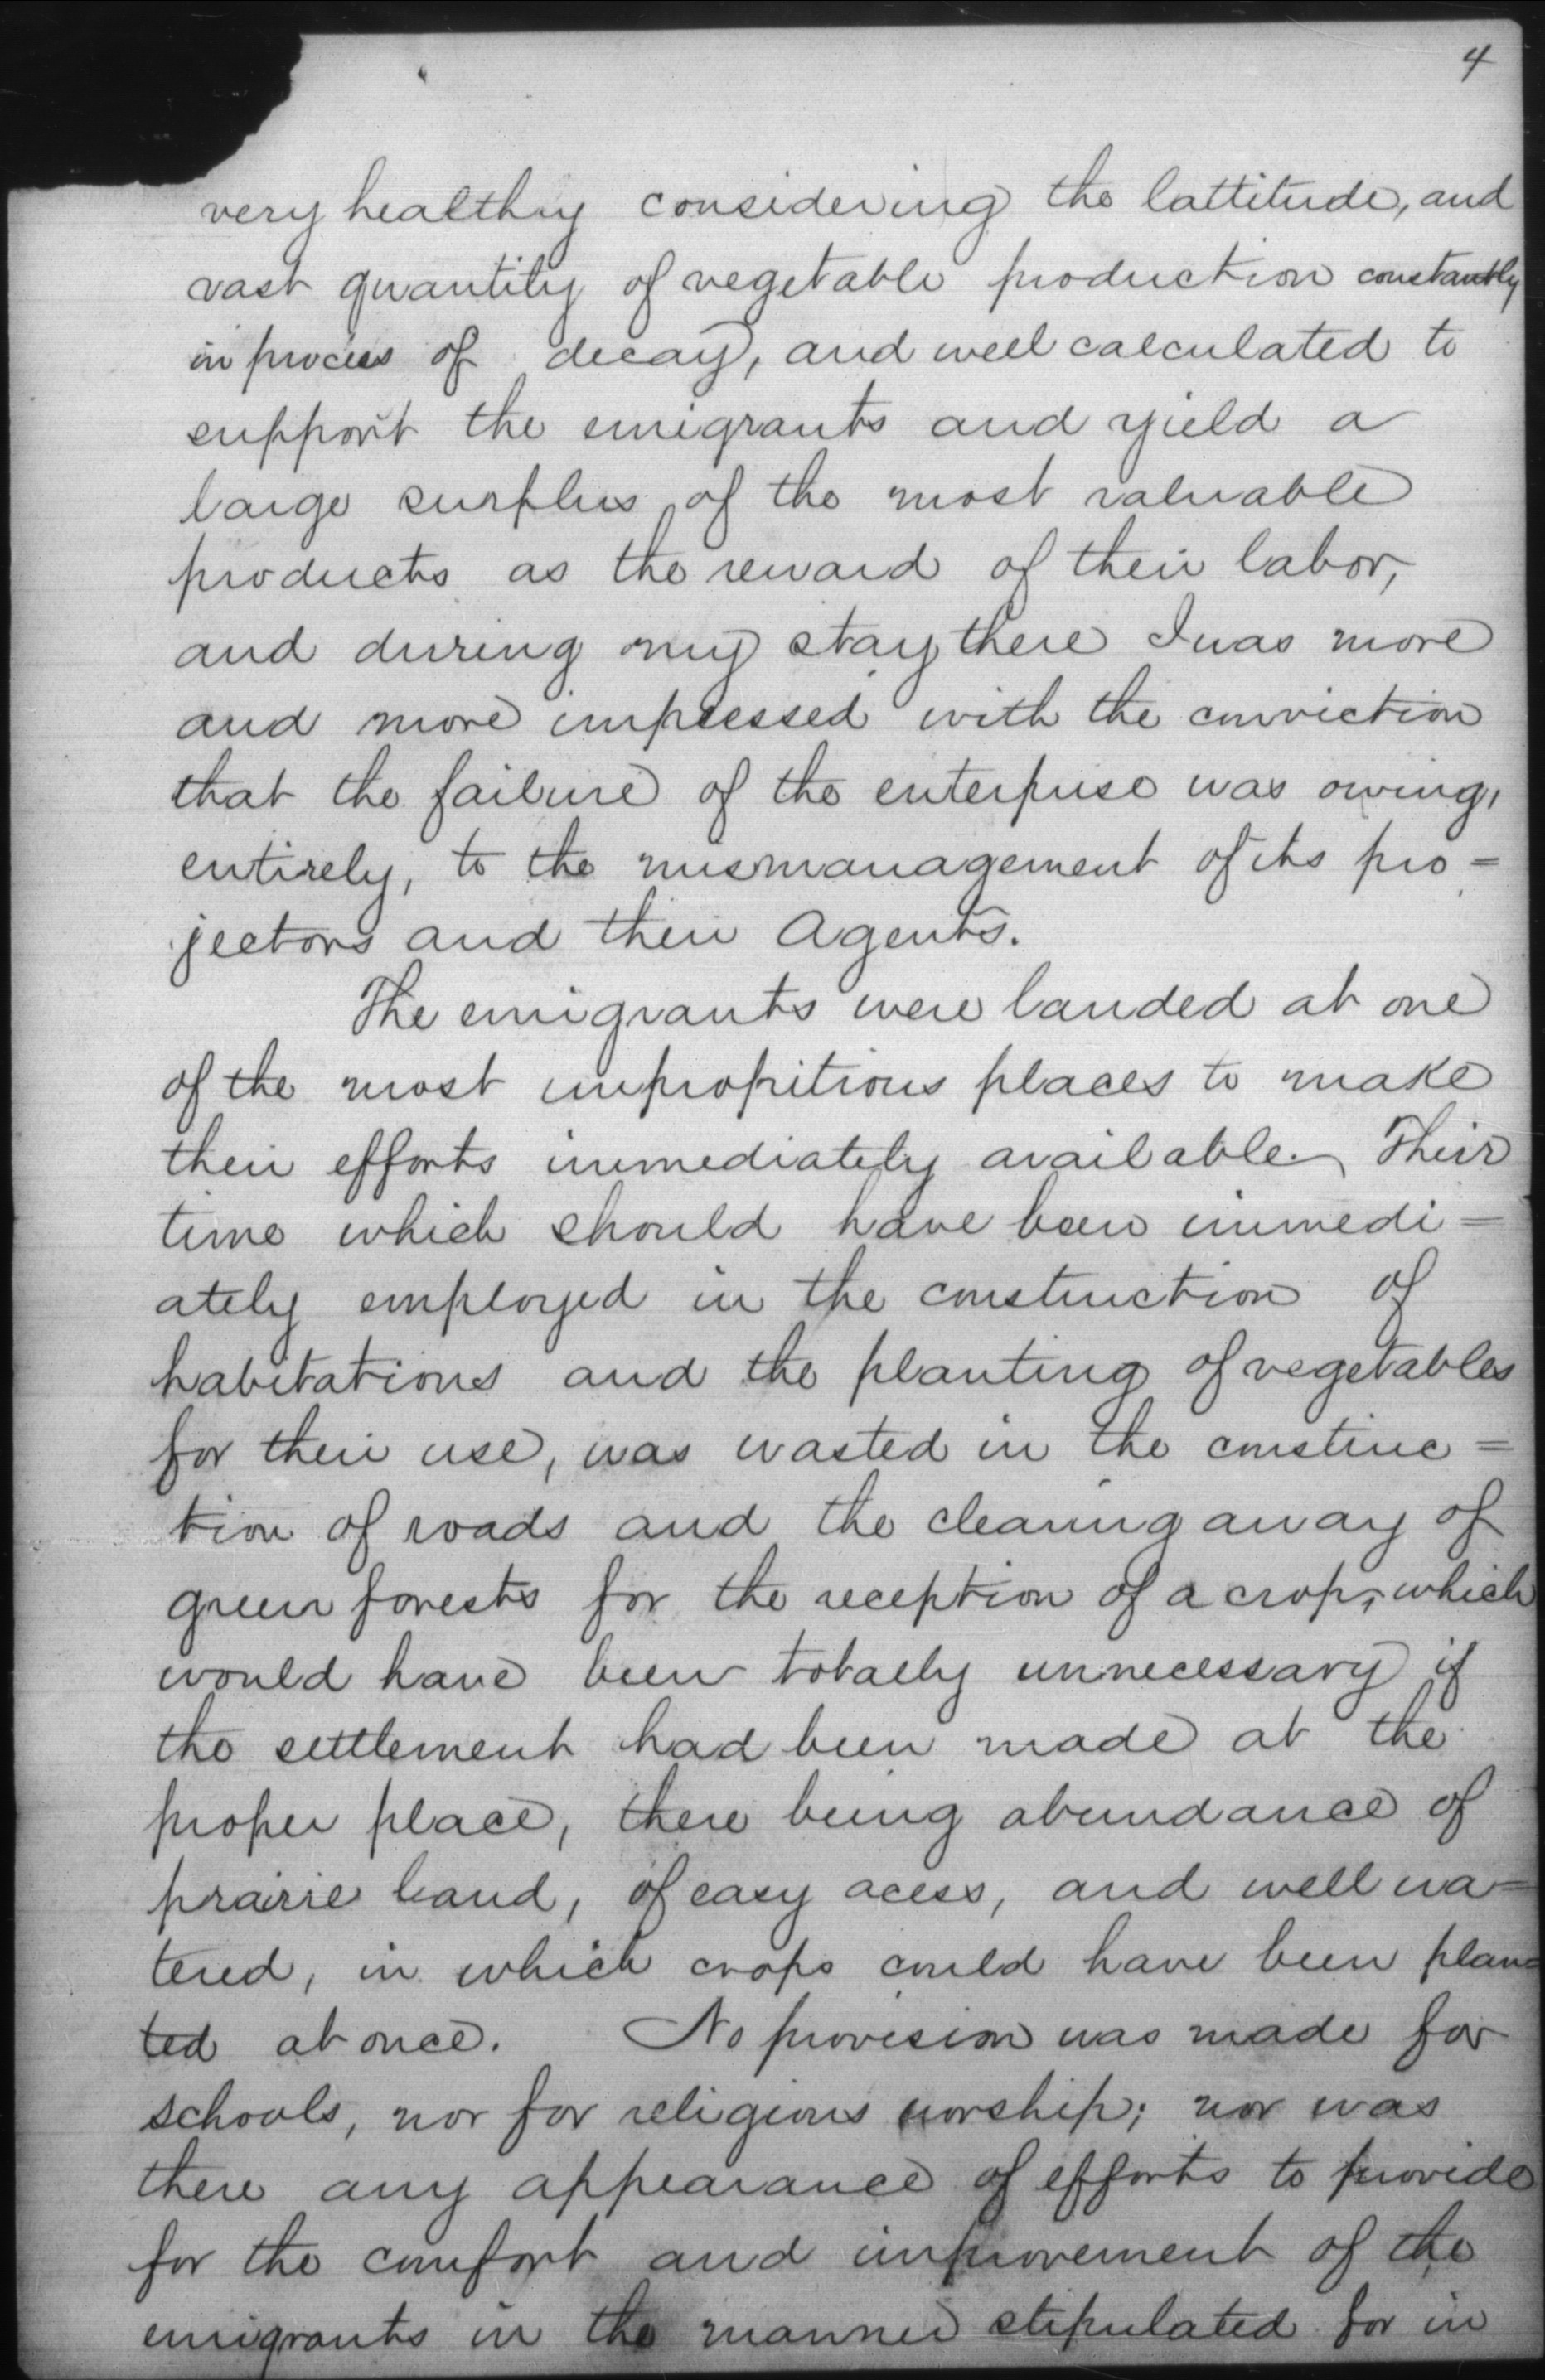 4
very healthy considering the lattitude, and
vast quantity of vegetable production constantly
in process of decay, and well calculated to
support the emigrants and yield a
large surplus of the most valuable
products as the reward of their labor,
and during my stay there I was more
and more impressed with the conviction
that the failure of the enterprise was owing,
entirely, to the mismanagement of its pro=
jectors and their Agents.
The emigrants were landed at one
of the most unpropitious places to make
their efforts immediately available. Their
time which should have been immedi=
ately employed in the construction of
habitations and the planting of vegetables
for their use, was wasted in the construc=
tion of roads and the clearing away of
green forests for the reception of a crop, which
would have been totally unnecessary if
the settlement had been made at the
proper place, there being abundance of
prairie land, of easy acess, and well wa=
tered, in which crops could have been plan=
ted at once. No provision was made for
schools, nor for religious worship; nor was
there any appearance of efforts to provide
for the comfort and improvement of the
emigrants in the manner stipulated for in